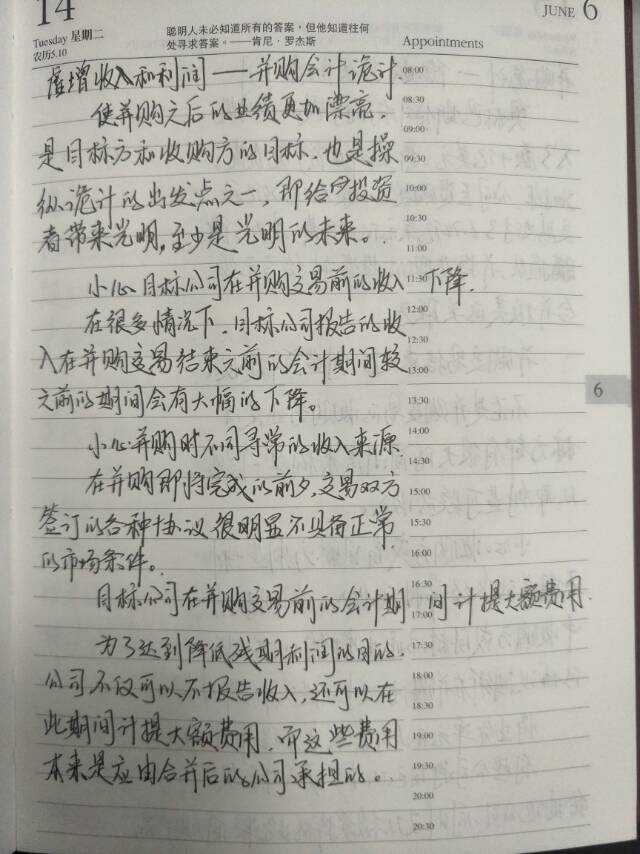 14
Tuesday 星期二
农历5.10
聪明人未必知道所有的答案，但他知道往何
处寻求答案。——肯尼·罗杰斯
JUNE 6
Appointments
虚增收入和利润——并购会计诡计. 08:00
使并购之后的业绩更加漂亮, 08:30
09:00
是目标方和收购方的目标，也是操 09:30
纵诡计的出发点之一，即给投资 10:00
10:30
者带来光明，至少是光明的未来。
11:00
小心目标公司在并购交易前的收入 11:30 下降.
12:00
在很多情况下，目标公司报告的收 12:30
入在并购交易结束之前的会计期间较 13:00
之前的期间会有大幅的下降。 13:30
14:00
小心并购时不同寻常的收入来源. 14:30
在并购即将完成的前夕，交易双方 15:00
签订的各种协议很明显不具备正常 15:30
的市场条件。 16:00
16:30
目标公司在并购交易前的会计期间计提大额费用.
17:00
为了达到降低残期利润的目的, 17:30
18:00
公司不仅可以不报告收入，还可以在 18:30
此期间计提大额费用，而这些费用 19:00
本来是应由合并后的公司承担的。 19:30
20:00
20:30
6